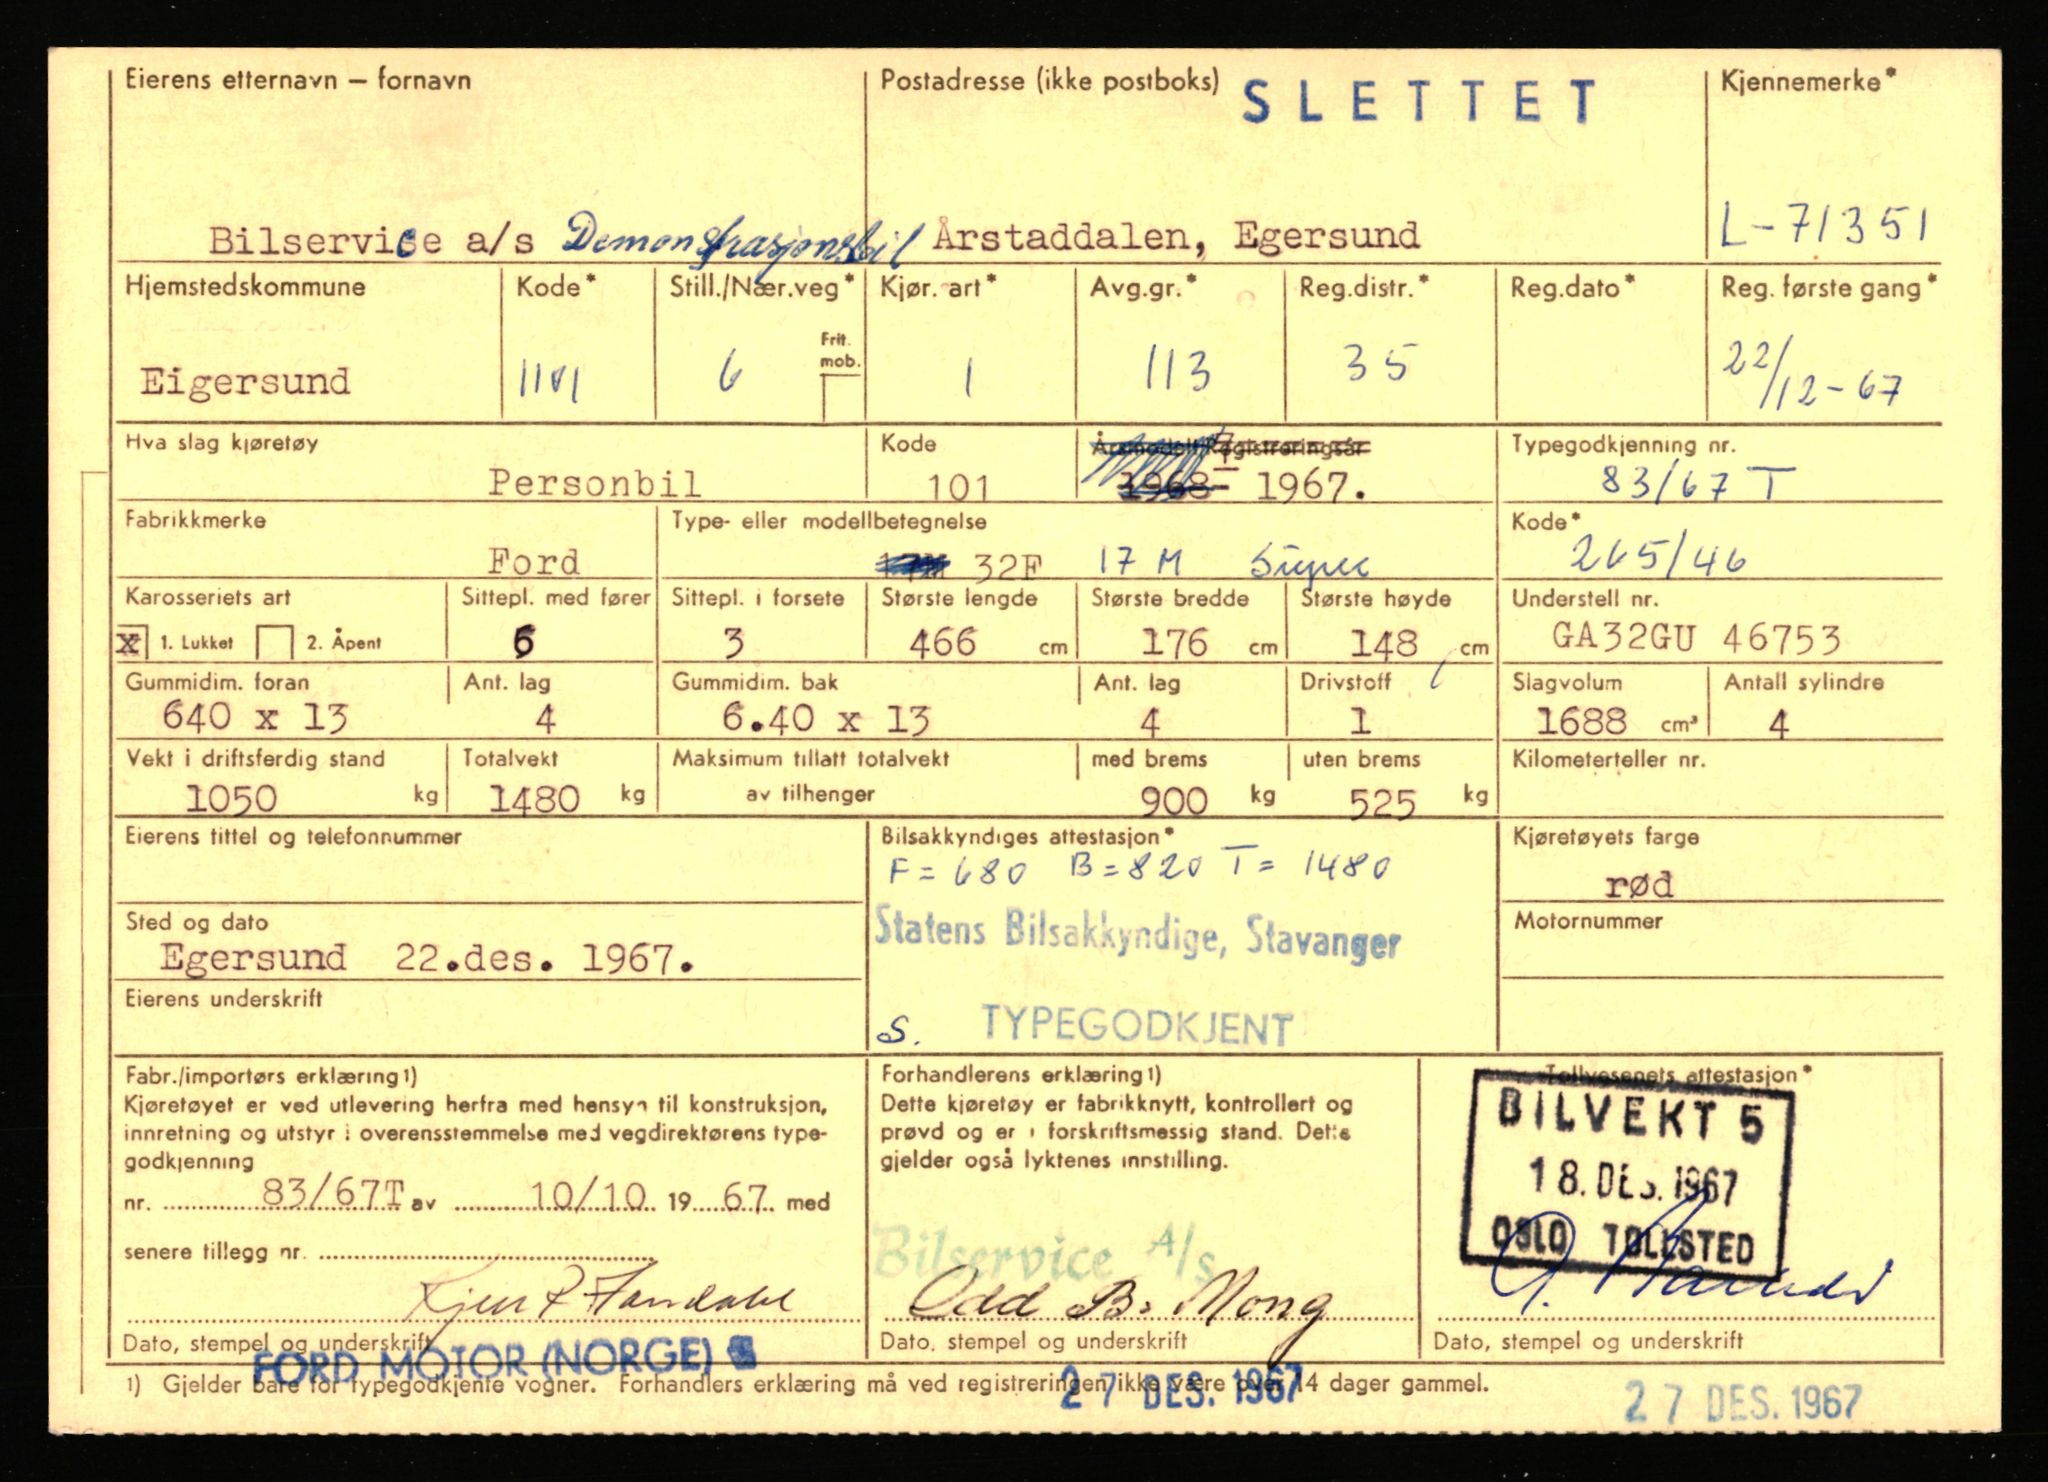 Eierens etternavn – fornavn
Postadresse (ikke postboks)
SLETTET
Kjennemerke*
Bilservice a/s Demonstrasjonsbil
Årstaddalen, Egersund
L-71351
Hjemstedskommune
Kode*
Still./Nær.veg*
Kjør. art*
Avg.gr.*
Reg.distr.*
Reg.dato*
Reg. første gang*
Frit. mob.
Eigersund
1101
6
1
113
35
22/12-67
Hva slag kjøretøy
Kode
Årsmodell/Registreringsår
Typegodkjenning nr.
Personbil
101
1968- 1967.
83/67 T
Fabrikkmerke
Type- eller modellbetegnelse
Kode*
Ford
17M 32F 17 M Super
265/46
Karosseriets art
Sittepl. med fører
Sittepl. i forsete
Største lengde
Største bredde
Største høyde
Understell nr.
x 1. Lukket
2. Åpent
3
466 cm
176 cm
148 cm
GA32GU 46753
Gummidim. foran
Ant. lag
Gummidim. bak
Ant. lag
Drivstoff
Slagvolum
Antall sylindre
640 x 13
4
6.40 x 13
4
1
1688 cm³
4
Vekt i driftsferdig stand
Totalvekt
Maksimum tillatt totalvekt
med brems
uten brems
Kilometerteller nr.
1050 kg
1480 kg
av tilhenger
900 kg
525 kg
Eierens tittel og telefonnummer
Bilsakkyndiges attestasjon*
Kjøretøyets farge
F = 680 B = 820 T = 1480
rød
Sted og dato
Statens Bilsakkyndige, Stavanger
Motornummer
Egersund 22.des. 1967.
Eierens underskrift
S. TYPEGODKJENT
Fabr./importørs erklæring1)
Kjøretøyet er ved utlevering herfra med hensyn til konstruksjon,
innretning og utstyr i overensstemmelse med vegdirektørens type-
godkjenning
nr. 83/67T av 10/10 1967 med
senere tillegg nr.
Dato, stempel og underskrift
FORD MOTOR (NORGE)
Forhandlerens erklæring1)
Dette kjøretøy er fabrikknytt, kontrollert og
prøvd og er i forskriftsmessig stand. Dette
gjelder også lyktenes innstilling.
Bilservice A/s
Odd B. Mong
Dato, stempel og underskrift
Tollvesenets attestasjon*
BILVEKT 5
18. DES. 1967
OSLO TOLLSTED
Dato, stempel og underskrift
1) Gjelder bare for typegodkjente vogner. Forhandlers erklæring må ved registreringen ikke være over 14 dager gammel.
27 DES. 1967
27 DES. 1967